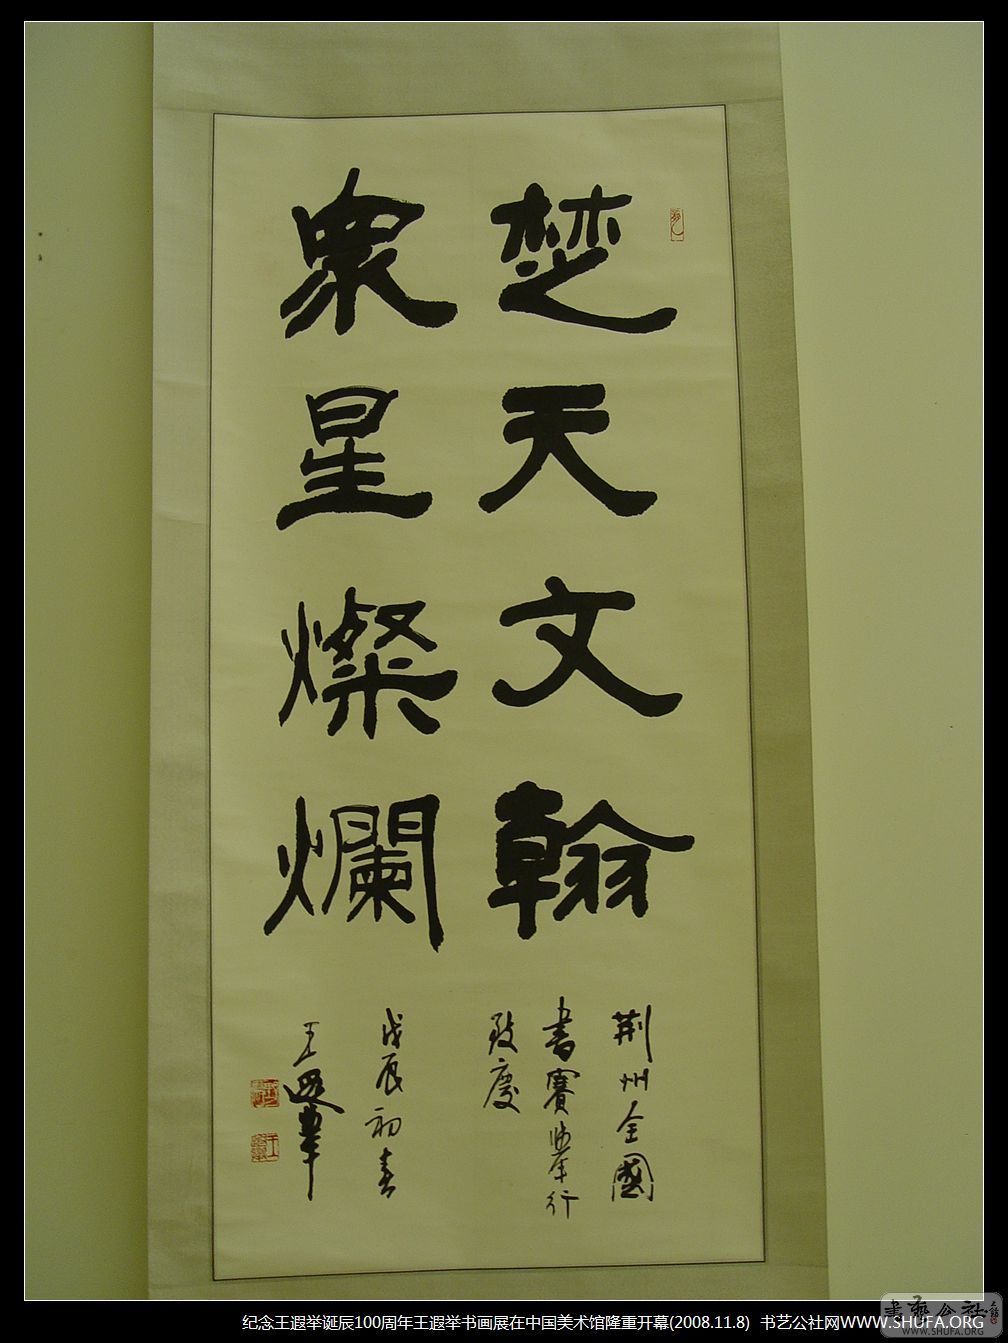 楚天文翰
衆星燦爛
荆州全國
書賽舉行
致慶
戊辰初春
王遐舉
纪念王遐举诞辰100周年王遐举书画展在中国美术馆隆重开幕(2008.11.8) 书艺公社网WWW.SHUFA.ORG
書艺公社
WWW.SHUFA.ORG